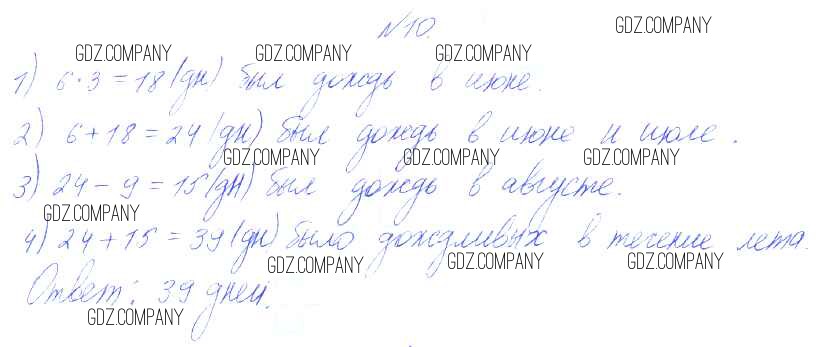 №10.
GDZ.COMPANY
GDZ.COMPANY GDZ.COMPANY GDZ.COMPANY
1) 6·3=18(дн) был дождь в июне.
2) 6+18=24(дн) был дождь в июне и июле.
GDZ.COMPANY GDZ.COMPANY GDZ.COMPANY
3) 24-9=15(дн) был дождь в августе.
GDZ.COMPANY
4) 24+15=39(дн) было дождливых в течение лета.
GDZ.COMPANY GDZ.COMPANY GDZ.COMPANY
Ответ: 39 дней.
GDZ.COMPANY